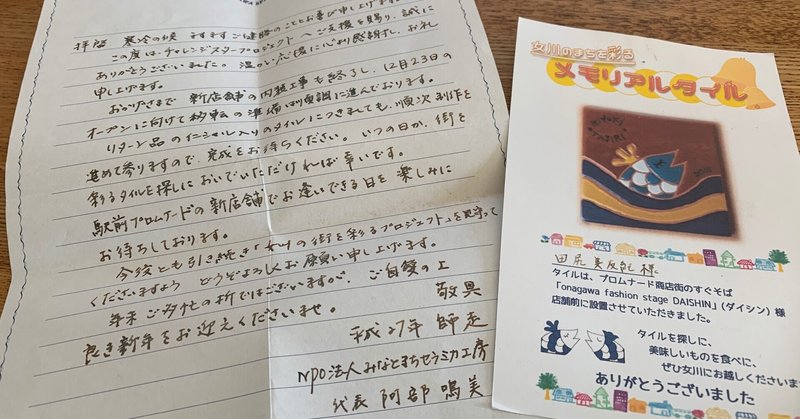 拝啓 寒冷の候 ますますご健勝のこととお喜び申し上げます。
この度は チャレンジスタープロジェクトへご支援を賜り、誠に
ありがとうございました。温かい応援に心より感謝し、お礼
申し上げます。
おかげさまで 新店舗の内装工事も終了し、12月23日の
オープンに向けて 移転の準備は順調に進んでおります。
リターン品のイニシャル入りのタイルにつきましても、順次制作を
進めて参りますので、完成をお待ちください。いつの日か、街を
彩るタイルを探しに おいでいただければ幸いです。
駅前プロムナードの新店舗でお逢いできる日を 楽しみに
お待ちしております。
今後とも引き続き「女川の街を彩るプロジェクト」を見守って
くださいますよう どうぞよろしくお願い申し上げます。
年末 ご多忙の折ではございますが、ご自愛の上
良き新年をお迎えくださいませ。
敬具
平成27年 師走
NPO法人みなとまちセラミカ工房
代表 阿部 鳴美
女川のまちを彩る
メモリアルタイル
MIYUKI
TAJIRI
田尻 美反紀 様
タイルは、プロムナード商店街のすぐそば
「onagawa fashion stage DAISHIN」(ダイシン) 様
店舗前に設置させていただきました。
タイルを探しに、
美味しいものを食べに、
ぜひ女川にお越しくださいま
ありがとうございました